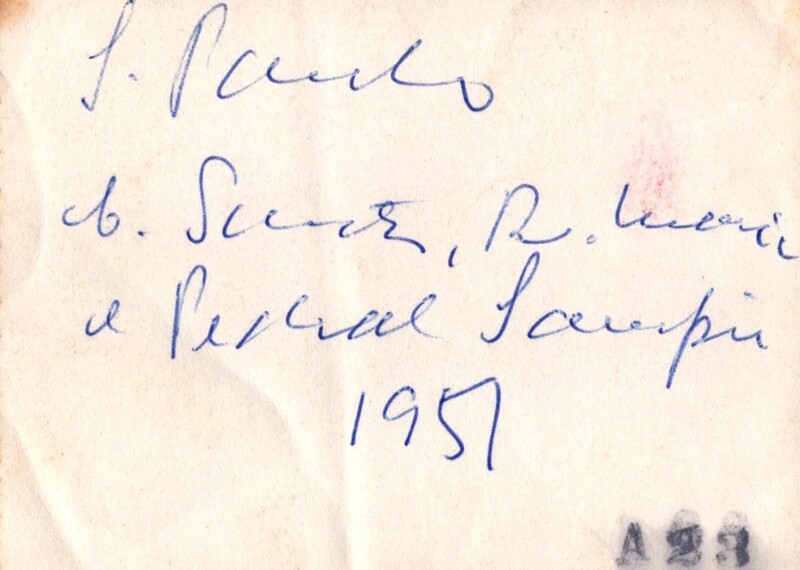 S. Paulo
b. Santos, R. Maria
e Pedral Sampaio
1951
A 23